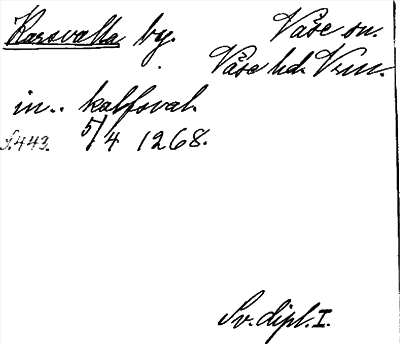 Karsvalla by. Väse sn.
Väse hd. Vrml.
in.. kalfsval.
S.443. 5/4 1268.
Sv. dipl. I.